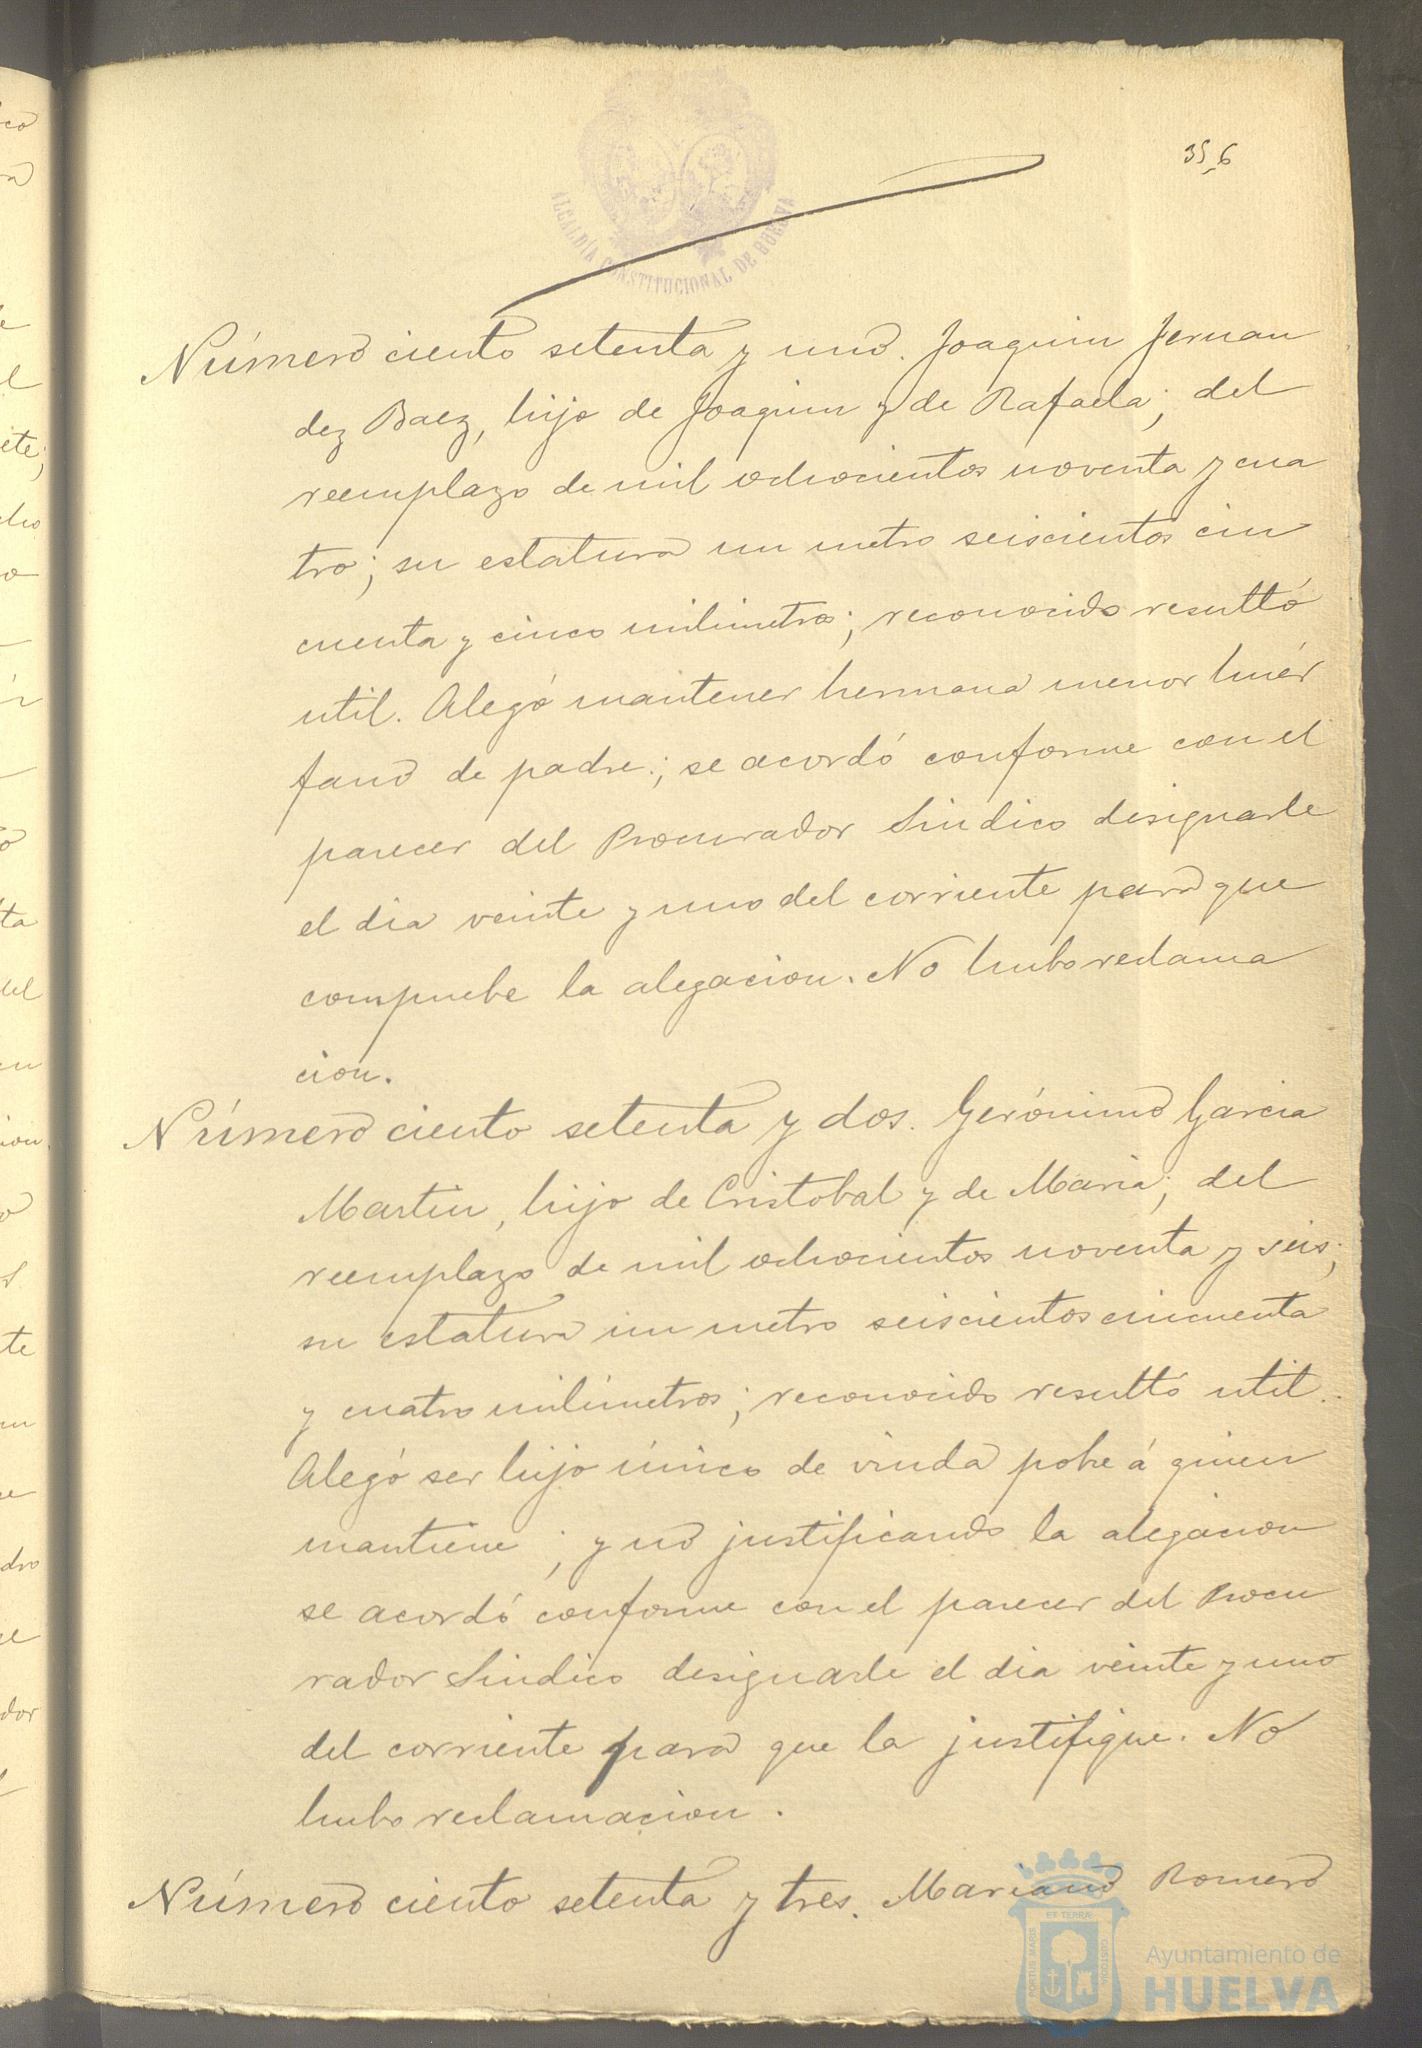 356
ALCALDÍA CONSTITUCIONAL DE HUELVA
Número ciento setenta y uno. Joaquin Fernan
dez Baez, hijo de Joaquin y de Rafaela; del
reemplazo de mil ochocientos noventa y cua
tro; su estatura un metro seiscientos cin
cuenta y cinco milimetros; reconocido resultó
util. Alegó mantener hermana menor huér
fano de padre; se acordó conforme con el
parecer del Procurador Sindico designarle
el dia veinte y uno del corriente para que
compruebe la alegacion. No hubo reclama
cion.
Número ciento setenta y dos. Gerónimo Garcia
Martin, hijo de Cristobal y de Maria; del
reemplazo de mil ochocientos noventa y seis;
su estatura un metro seiscientos cincuenta
y cuatro milímetros; reconocido resultó util.
Alegó ser hijo único de viuda pobre á quien
mantiene; y no justificando la alegacion
se acordó conforme con el parecer del Procu
rador Sindico designarle el dia veinte y uno
del corriente para que la justifique. No
hubo reclamacion.
Número ciento setenta y tres. Mariano Romero
PORTUS MARIS ET TERRAE CUSTODIA
Ayuntamiento de
HUELVA